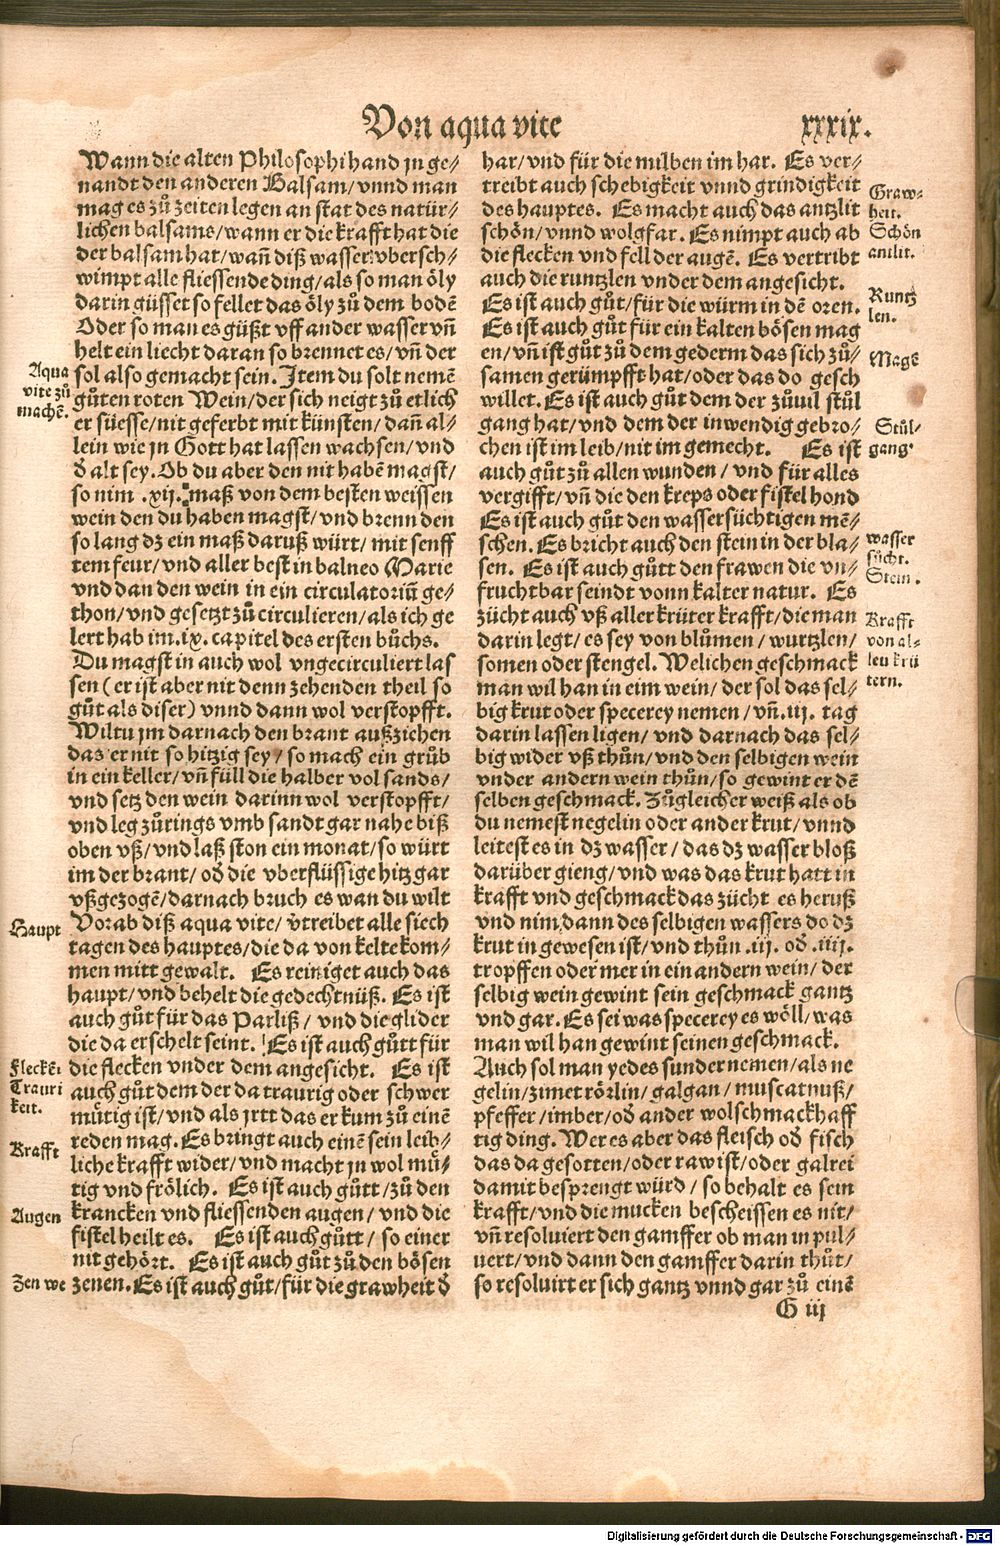 Von aqua vite
xxxix.
Wann die alten Philosophi hand jn ge⸗
nandt den anderen Balsam/ vnnd man
mag es zů zeiten legen an stat des natür⸗
lichen balsams/ wann er die krafft hat die
der balsam hat/ wañ diß wasser vbersch⸗
wimpt alle fliessende ding/ als so man öly
darin güsset so fellet das öly zů dem bodē
Oder so man es güßt vff ander wasser vñ
helt ein liecht daran so brennet es/ vñ der
sol also gemacht sein. Item du solt nemē
gůten roten Wein/ der sich neigt zů etlich
er süesse/ nit geferbt mit künsten/ dañ al⸗
lein wie jn Gott hat lassen wachsen/ vnd
d̕ alt sey. Ob du aber den nit habē magst/
so nim .xij. maß von dem besten weissen
wein den du haben magst/ vnd brenn den
so lang dz ein maß daruß würt/ mit senff
tem feur/ vnd aller best in balneo Marie
vnd dan den wein in ein circulatoriū ge⸗
thon/ vnd gesetzt zů circulieren/ als ich ge
lert hab im .ix. capitel des ersten bůchs.
Du magst in auch wol vngecirculiert las
sen (er ist aber nit denn zehenden theil so
gůt als diser) vnnd dann wol verstopfft.
Wiltu jm darnach den brant außziehen
das er nit so hitzig sey/ so mach ein grůb
in ein keller/ vñ füll die halber vol sands/
vnd setz den wein darinn wol verstopfft/
vnd leg zůrings vmb sandt gar nahe biß
oben vß/ vnd laß ston ein monat/ so würt
im der brant/ od̕ die vberflüssige hitz gar
vßgezogē/ darnach bruch es wan du wilt
Vorab diß aqua vite/ v̕treibet alle siech
tagen des hauptes/ die da von kelte kom⸗
men mitt gewalt. Es reiniget auch das
haupt/ vnd behelt die gedechtnüß. Es ist
auch gůt für das Parliß/ vnd die glider
die da erschelt seint. Es ist auch gůtt für
die flecken vnder dem angesicht. Es ist
auch gůt dem der da traurig oder schwer
mütig ist/ vnd als jrtt das er kum zů einē
reden mag. Es bringt auch einē sein leib⸗
liche krafft wider/ vnd macht jn wol mü⸗
tig vnd frölich. Es ist auch gůtt/ zů den
krancken vnd fliessenden augen/ vnd die
fistel heilt es. Es ist auch gůtt/ so einer
nit gehört. Es ist auch gůt zů den bösen
zenen. Es ist auch gůt/ für die grawheit d̕
Aqua
vite zů
machē.
Haupt
Fleckē
Trauri
keit.
Krafft
Augen
Zen we
har/ vnd für die milben im har. Es ver⸗
treibt auch schebigkeit vnnd grindigkeit
des hauptes. Es macht auch das antzlit
schön/ vnnd wolgfar. Es nimpt auch ab
die flecken vnd fell der augē. Es vertribt
auch die runtzlen vnder dem angesicht.
Es ist auch gůt/ für die würm in dē oren.
Es ist auch gůt für ein kalten bösen mag
en/ vñ ist gůt zů dem gederm das sich zů⸗
samen gerümpfft hat/ oder das do gesch
willet. Es ist auch gůt dem der zůuil stůl
gang hat/ vnd dem der inwendig gebro⸗
chen ist im leib/ nit im gemecht. Es ist
auch gůt zů allen wunden/ vnd für alles
vergifft/ vñ die den kreps oder fistel hond
Es ist auch gůt den wassersüchtigen mē⸗
schen. Es bricht auch den stein in der bla⸗
sen. Es ist auch gůtt den frawen die vn⸗
fruchtbar seindt vonn kalter natur. Es
zücht auch vß aller krüter krafft/ die man
darin legt/ es sey von blůmen/ wurtzlen/
somen oder stengel. Welichen geschmack
man wil han in eim wein/ der sol das sel⸗
big krut oder specerey nemen/ vñ .iij. tag
darin lassen ligen/ vnd darnach das sel⸗
big wider vß thůn/ vnd den selbigen wein
vnder andern wein thůn/ so gewint er dē
selben geschmack. Zůgleicher weiß als ob
du nemest negelin oder ander krut/ vnnd
leitest es in dz wasser/ das dz wasser bloß
darüber gieng/ vnd was das krut hatt in
krafft vnd geschmack das zücht es heruß
vnd nim dann des selbigen wassers do dz
krut in gewesen ist/ vnd thůn .iij. od̕ .iiij.
tropffen oder mer in ein andern wein/ der
selbig wein gewint sein geschmack gantz
vnd gar. Es sei was specerey es wöll/ was
man wil han gewint seinen geschmack.
Auch sol man yedes sunder nemen/ als ne
gelin/ zimet rörlin/ galgan/ muscatnuß/
pfeffer/ imber/ od̕ ander wolschmackhaff
tig ding. Wer es aber das fleisch od̕ fisch
das da gesotten/ oder raw ist/ oder galrei
damit besprengt würd/ so behalt es sein
krafft/ vnd die mucken bescheissen es nit/
vñ resoluiert den gamffer ob man in pul⸗
uert/ vnd dann den gamffer darin thůt/
so resoluirt er sich gantz vnnd gar zů einē
Graw⸗
heit.
Schön
antlit.
Runtz
len.
Magē
Stůl⸗
gang
wasser
sücht.
Stein.
Krafft
von al⸗
len krü
tern.
G iij
Digitalisierung gefördert durch die Deutsche Forschungsgemeinschaft - DFG